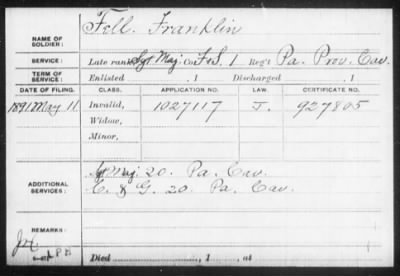 NAME OF SOLDIER: Fell, Franklin
SERVICE: Late rank Sgt Maj, Co. F&S, 1 Reg't Pa. Prov. Cav.
TERM OF SERVICE: Enlisted , 1 Discharged , 1
DATE OF FILING. CLASS. APPLICATION NO. LAW. CERTIFICATE NO.
1891 May 11 Invalid, 1027117 J. 927805
Widow,
Minor,
ADDITIONAL SERVICES: Sgt Maj 20. Pa. Cav.
C & G. 20 Pa. Cav.
REMARKS:
Died , 1 , at